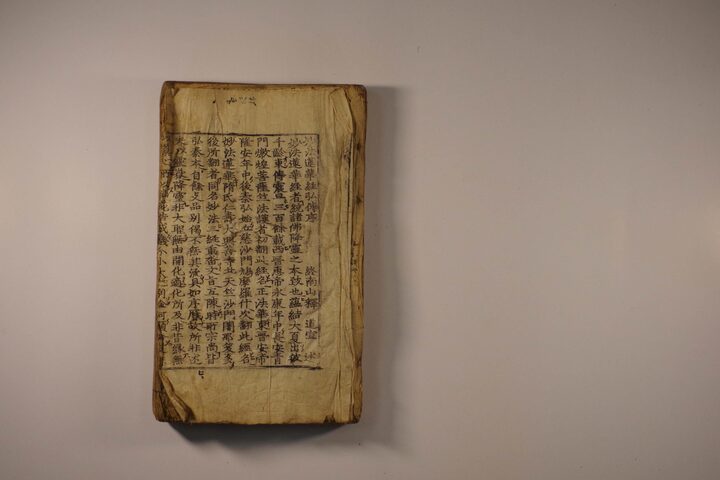 妙法蓮華經弘傳序 終南山釋 道宣 述
妙法蓮華經者統諸佛降靈之本致也蘊結大夏出彼
千齡東傳震旦三百餘載西晉惠帝永康年中長安青
門燉煌菩薩竺法護者初翻此經名正法華東晉安帝
隆安年中後秦弘始龜茲沙門鳩摩羅什次翻此經名
妙法蓮華隋氏仁壽大興善寺北天竺沙門闍那笈多
後所翻者同名妙法三經重沓文旨互陳時所宗尚皆
弘秦本自餘支品別偈不無其流具如序歷故所非述
夫以靈岳降靈非大聖無由開化適化所及非昔緣無
成機分小大之別金河顧